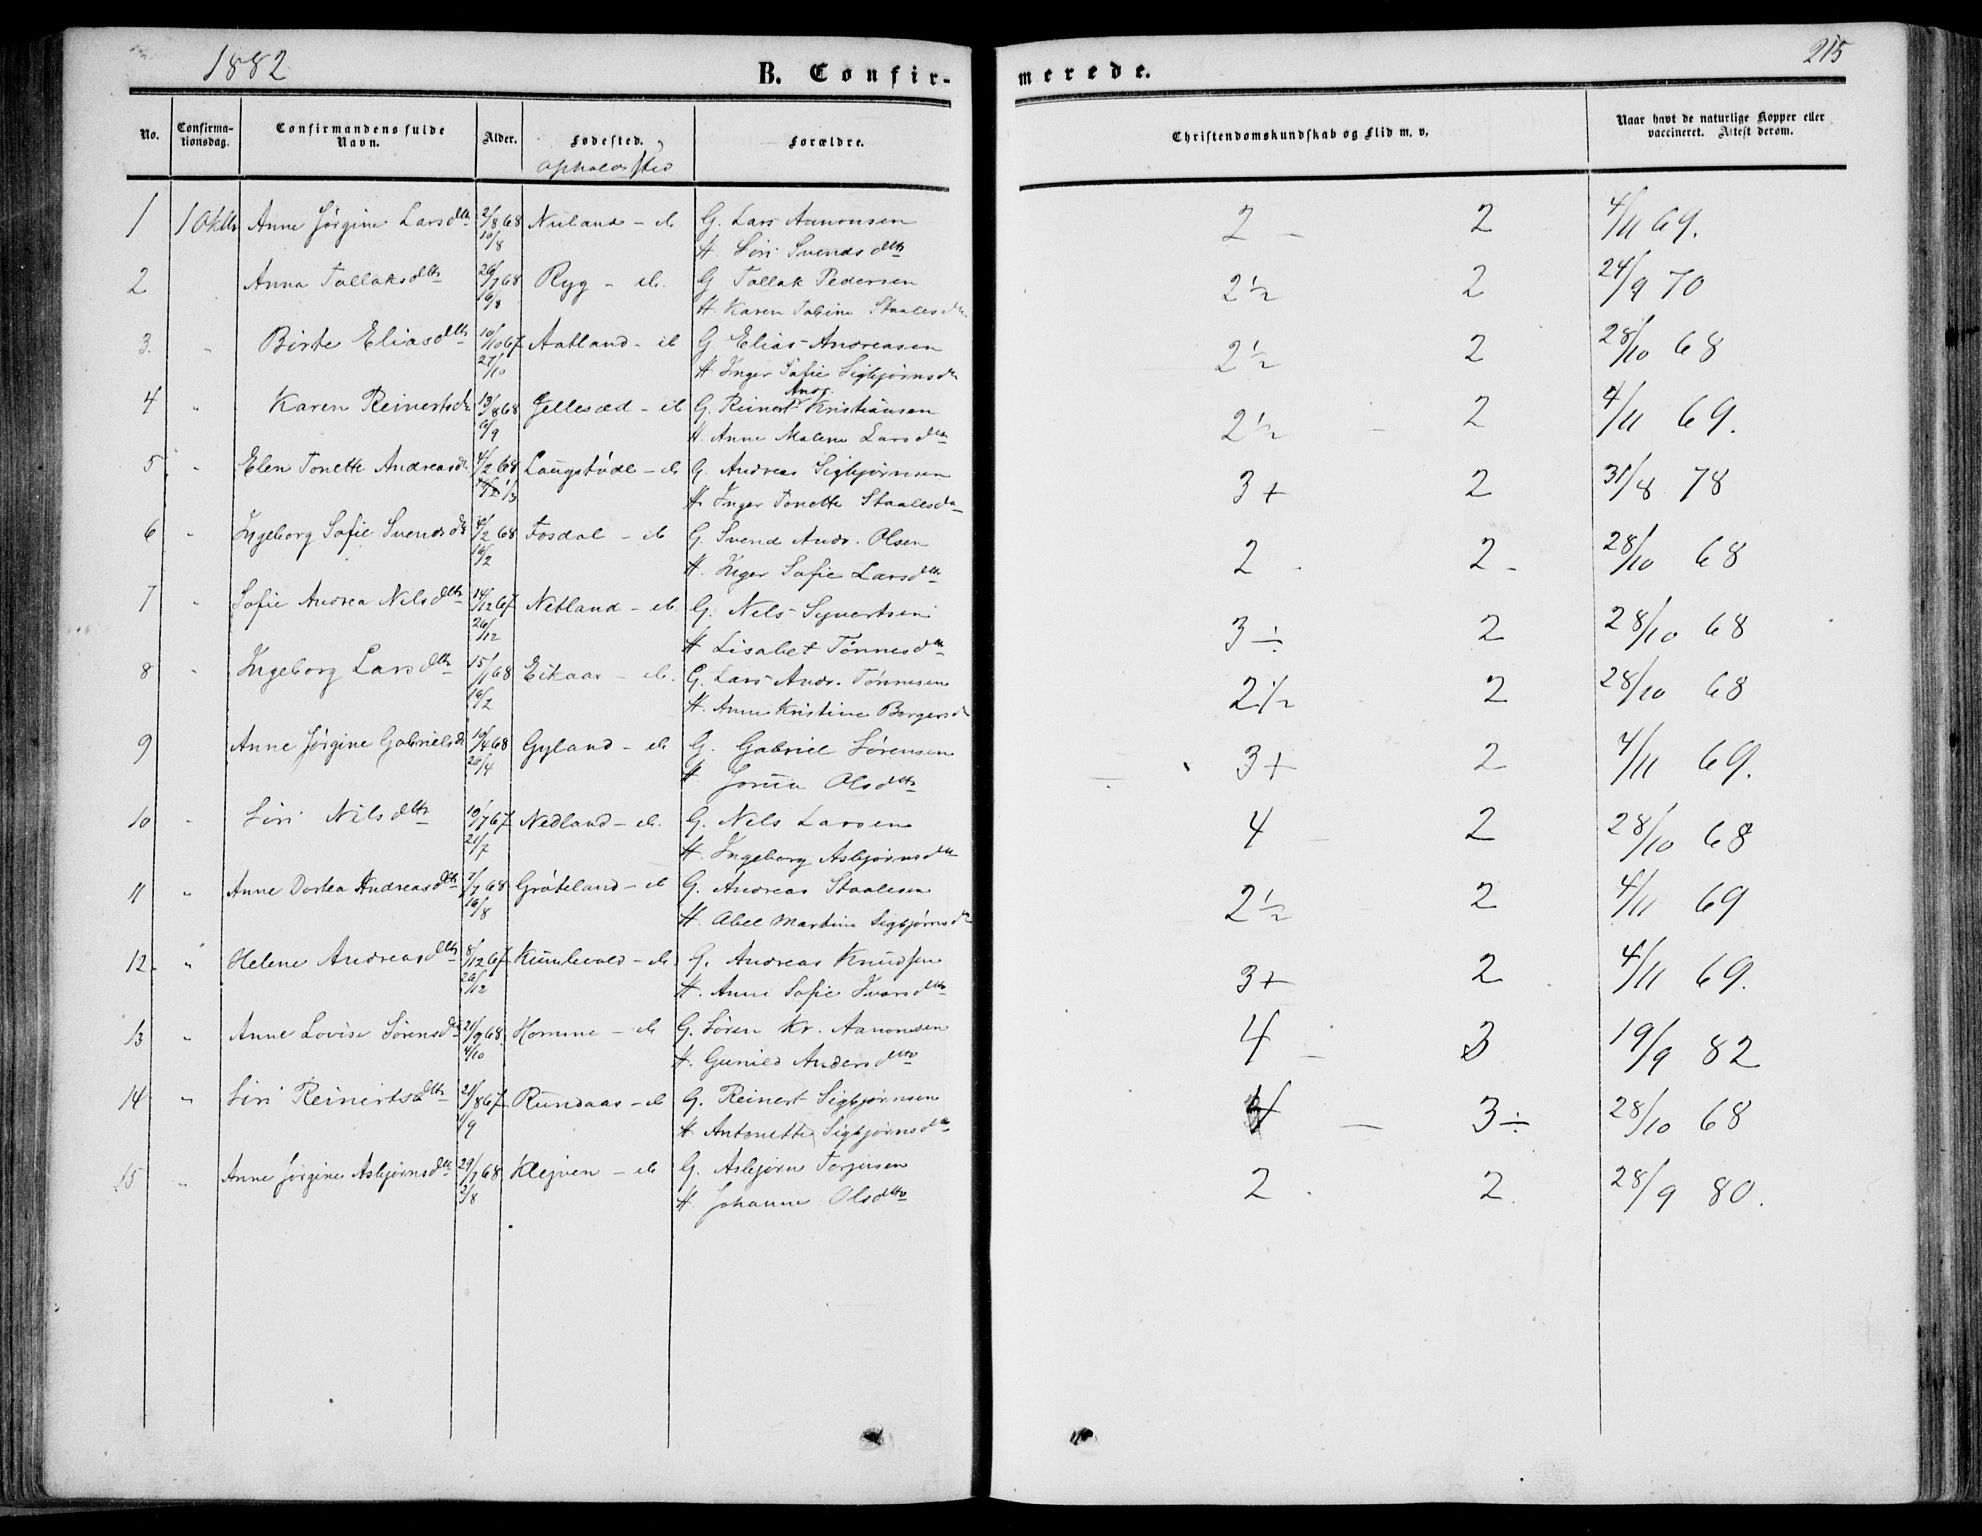 1882
B. Confir-
merede.
215
No.
Confirma-
tionsdag.
Confirmandens fulde
Navn.
Alder.
Fødested.
opholdssted
Forældre.
Christendomskundskab og Flid m. v.
Naar havt de naturlige Kopper eller
vaccineret. Attest derom.
1 1 Oktbr Anne Jørgine Larsdttr 2/8 68 Nuland - ib G. Lars Aanonsen 2 - 2 4/11 69.
10/8 H. Siri Svendsdttr
2 Anna Tallaksdttr 26/7 68 Ryg - ib. G Tallak Pedersen 2½ 2 24/9 70
16/8 H. Karen Tobine Staalesdtr
3. " Birte Eliasdttr 10/10 67 Aatland - ib G Elias Andreasen 2½ 2 28/10 68
27/10 H Inger Sofie Sigbjørnsdtr
4 " Karen Reinertsdtr 13/8 68 Gellesæd - ib G. Reinert Andr. Kristiansen 2½ - 2 4/11 69.
6/9 H. Anne Malene Larsdttr
5 " Elen Tonette Andreasdtr 4/2 68 Laugstøde - ib G. Andreas Sigbjørnsen 3+ 2 31/8 78
1/3 H. Inger Tonette Staalesdtr
6 " Ingeborg Sofie Svendsdtr 4/2 68 Fosdal - ib G. Svend Andr. Olsen 2 . 2 - 28/10 68
16/2 H. Inger Sofie Larsdttr
7 " Sofie Andrea Nilsdttr 14/12 67 Netland - ib G. Nels Syvertsen 3 ÷ 2 28/10 68
26/12 H Lisabet Tønnesdtr
8 " Ingeborg Larsdttr 15/1 68 Eikaas - ib. G. Lars Andr. Tønnesen 2½ 2 28/10 68
16/2 H. Anne Kristine Borgersdtr
9 Anne Jørgine Gabrielsdtr 10/4 68 Gyland - ib G. Gabriel Sørensen 3+ 2 4/11 69.
26/4 H Jorun Olsdttr
10 " Siri Nilsdttr 10/7 67 Nedland - ib. G. Nels Larsen 4 - 2 28/10 68
21/7 H. Ingeborg Asbjørnsdtr
11 " Anne Dortea Andreasdttr 7/7 68 Grøteland - ib G. Andreas Staalesen 2½ 2 4/11 69
16/8 H. Abel Martine Sigbjørnsdtr
12. " Helene Andreasdttr 8/12 67 Kumlevold - ib G. Andreas Knudsen 3+ 2 4/11 69.
26/12 H. Anne Sofie Ivarsdttr
13 " Anne Lovise Sørensdtr 21/9 68. Homme - ib G. Søren Kr. Aanonsen 4 - 3 19/9 82
4/10 H. Gunild Andersdttr
14 " Siri Reinertsdttr 21/8 67 Rundaas - ib G. Reinert Sigbjørnsen 4 - 3 ÷ 28/10 68
1/9 H. Antonette Sigbjørnsdtr
15 " Anne Jørgine Asbjørnsdtt 29/7 68 Klejven - ib G. Asbjørn Torjusen 2 . 2. 28/9 80.
2/8 H Johanne Olsdttr